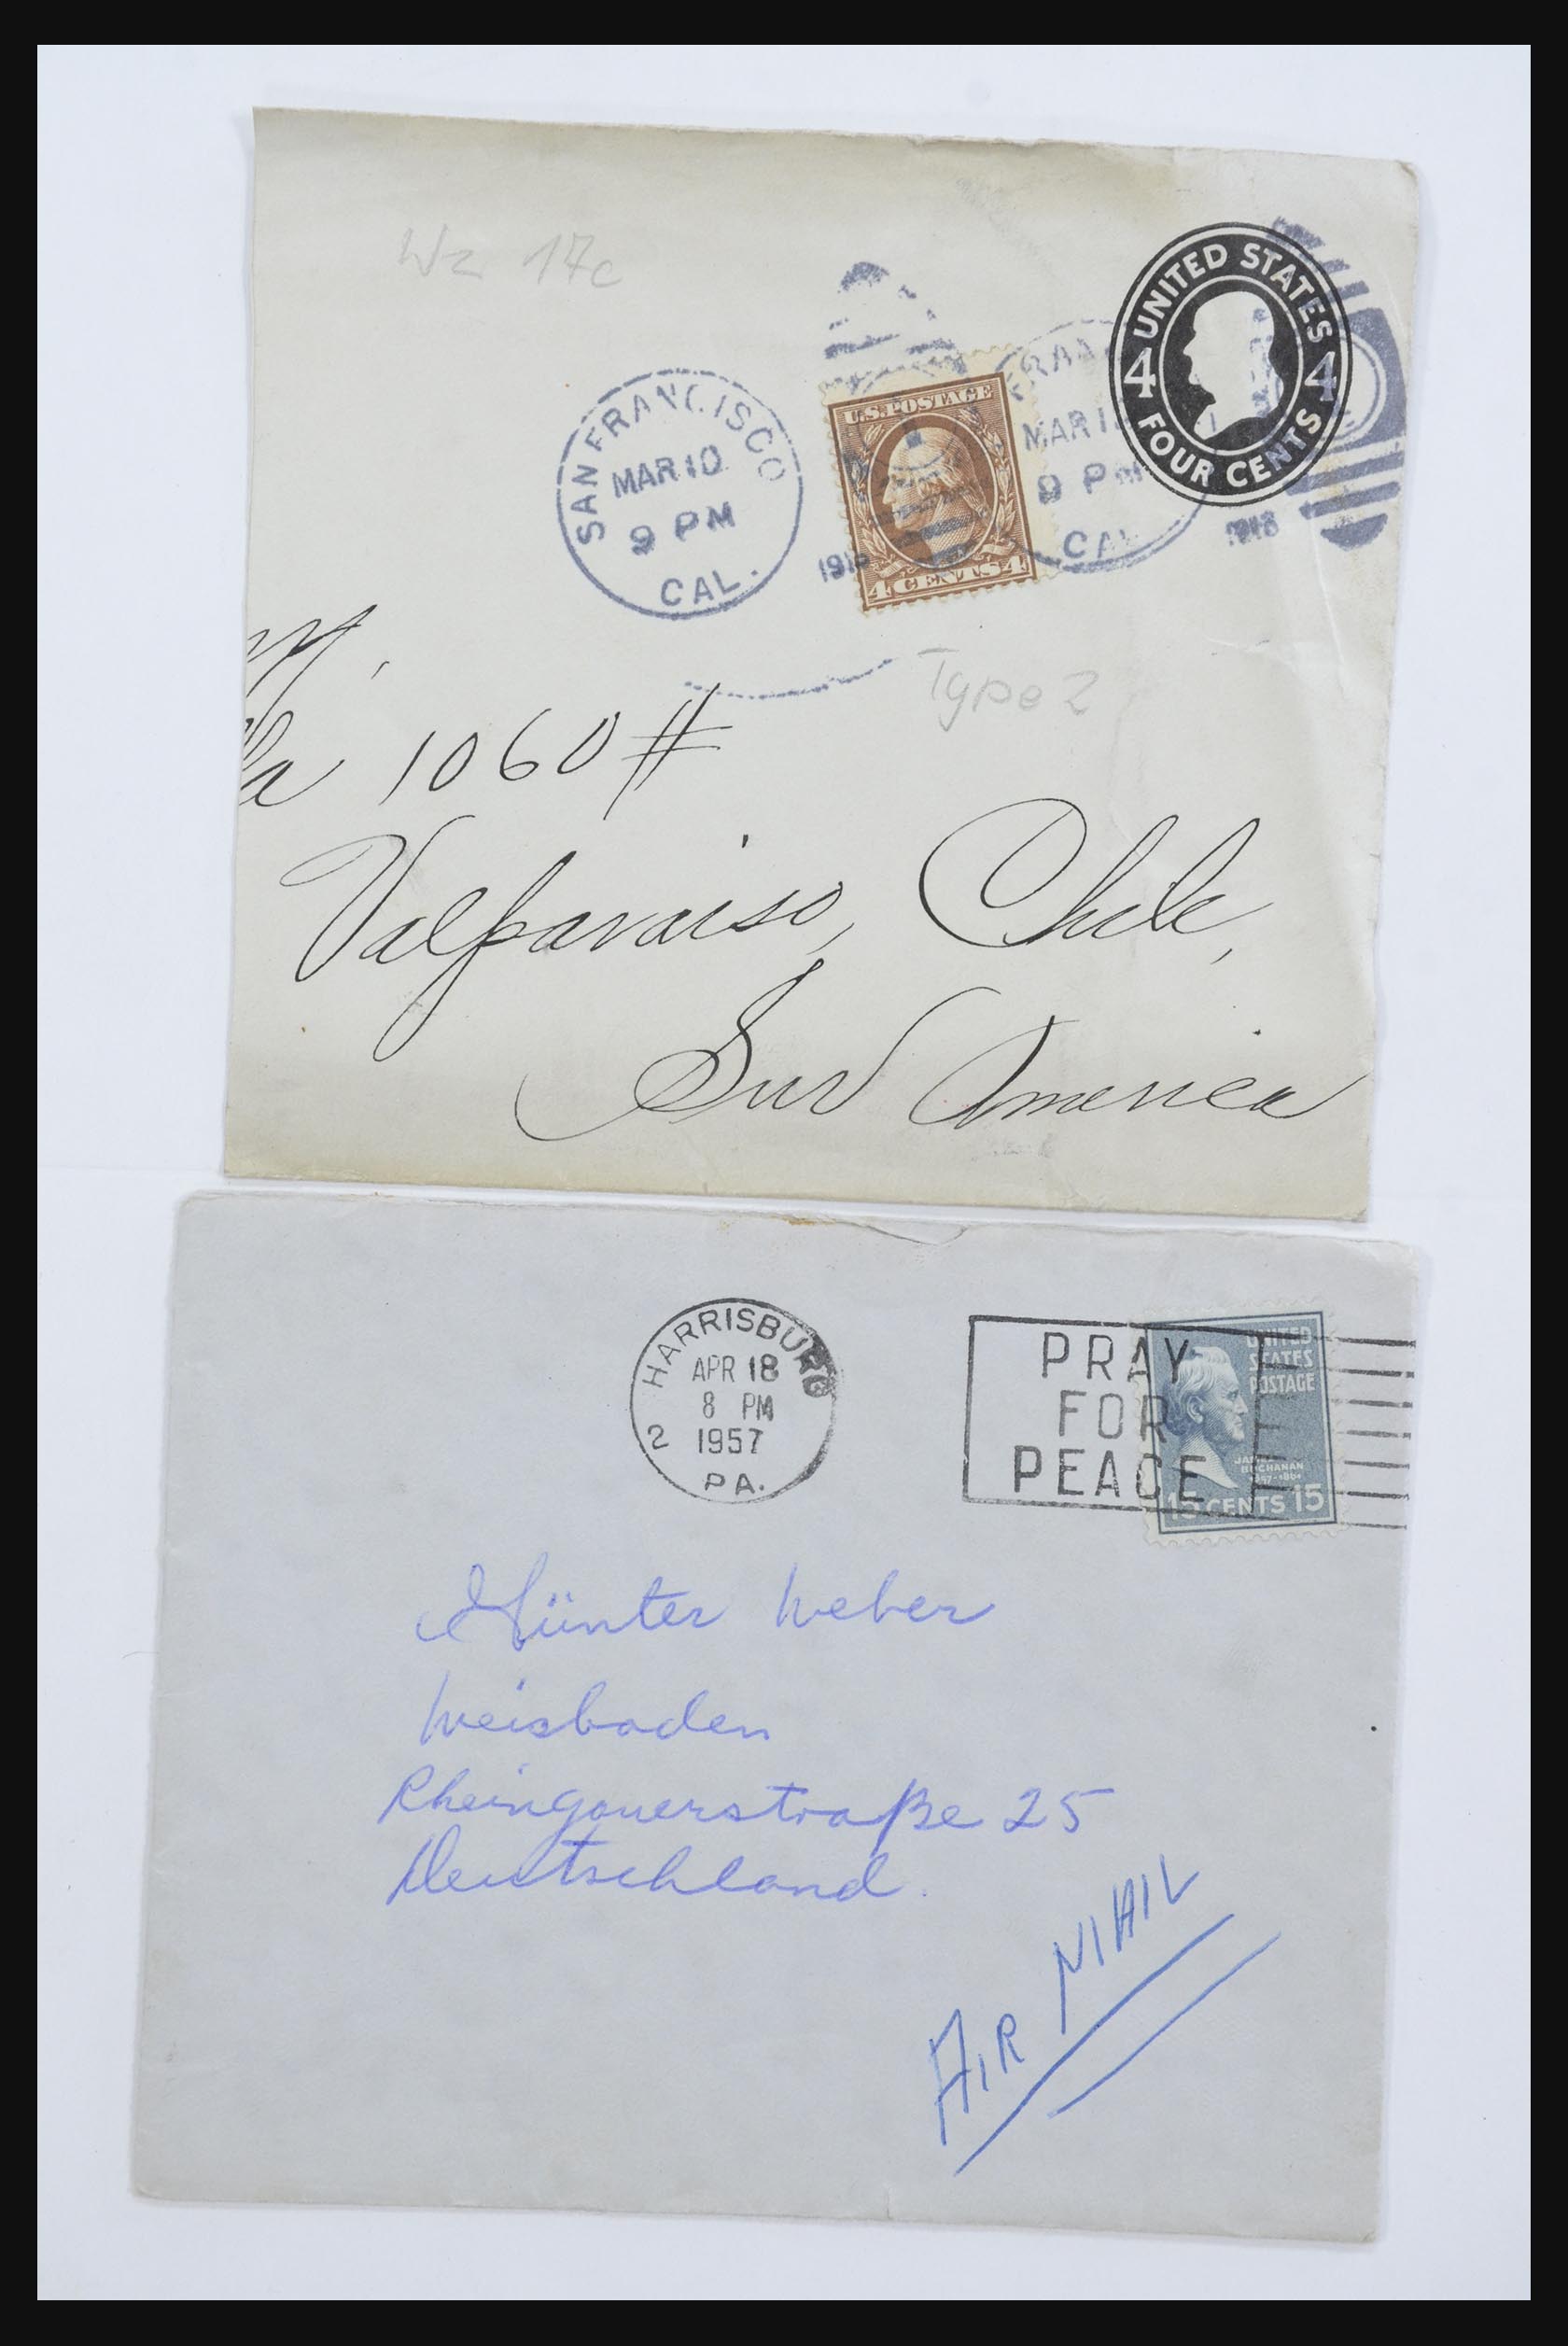 Wz 17c
UNITED STATES
4 4
FOUR CENTS
U.S. POSTAGE
4 CENTS 4
SAN FRANCISCO
MAR 10
9 PM
CAL.
191
FRAN
MAR 1
9 PM
CAL
1918
Type 2
1060 #
Valparaiso, Chile,
Sur America
HARRISBURG
APR 18
8 PM
2 1957
PA.
PRAY
FOR
PEACE
UNITED
STATES
POSTAGE
JAMES
BUCHANAN
1857-1861
15 CENTS 15
Günter Weber
Weisbaden
Rheingauerstraße 25
Deutschland.
AIR MAIL